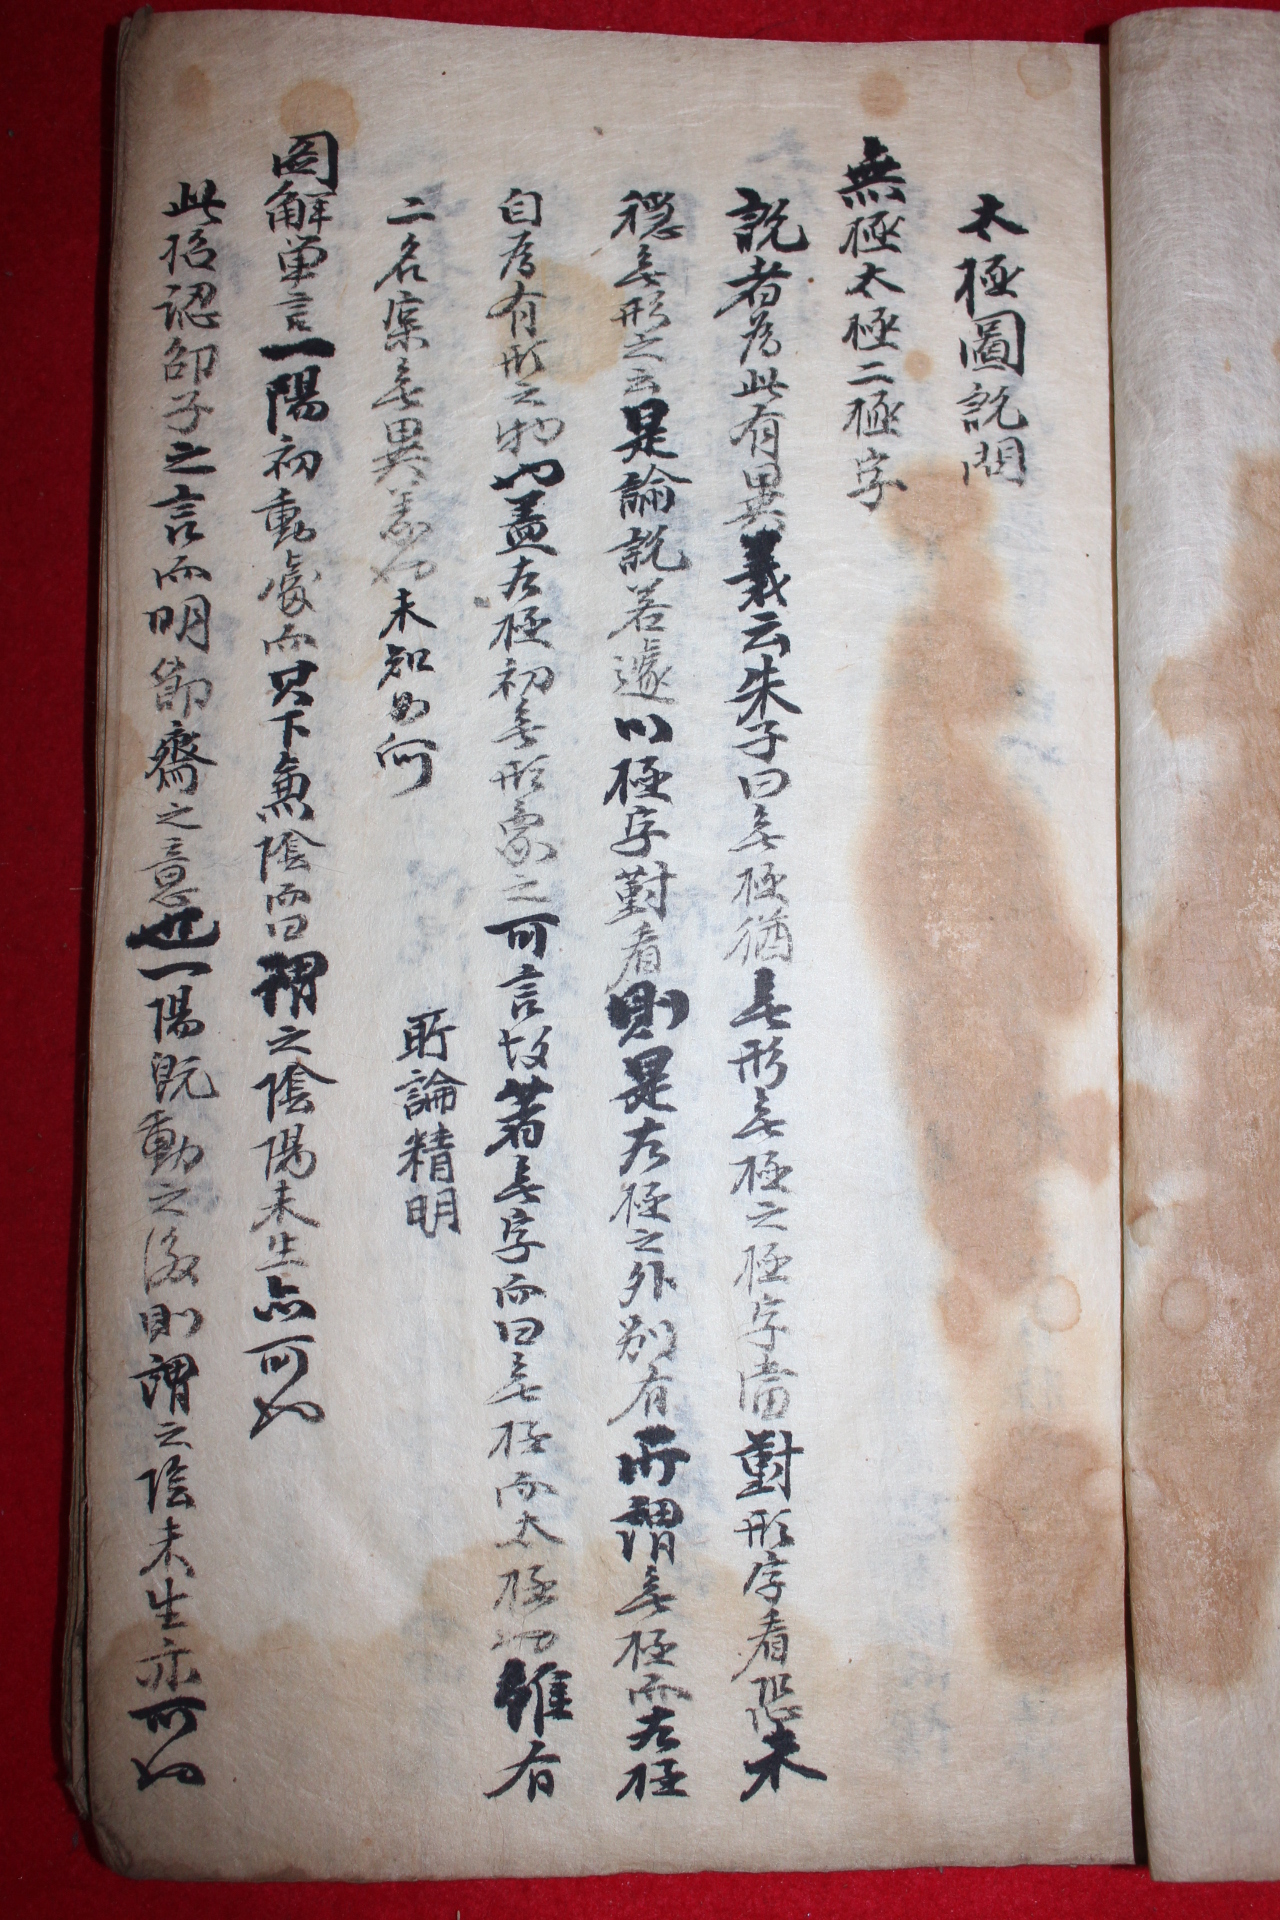 太極圖說問
無極太極二極字
說者為此有異義云朱子曰无極猶无形无極之極字當對形字看恐未
穩无形之云是論說若遽以極字對看則是太極之外別有所謂无極而太極
自為有形之物也盖太極初无形象之可言故著无字而曰无極而太極也雖有
二名案无異義也未知如何 所論精明
圖解單言一陽初動處而只下無陰而曰謂之陰陽未生亦可也
此恐認邵子之言而明節齋之意也一陽旣動之後則謂之陰未生亦可也